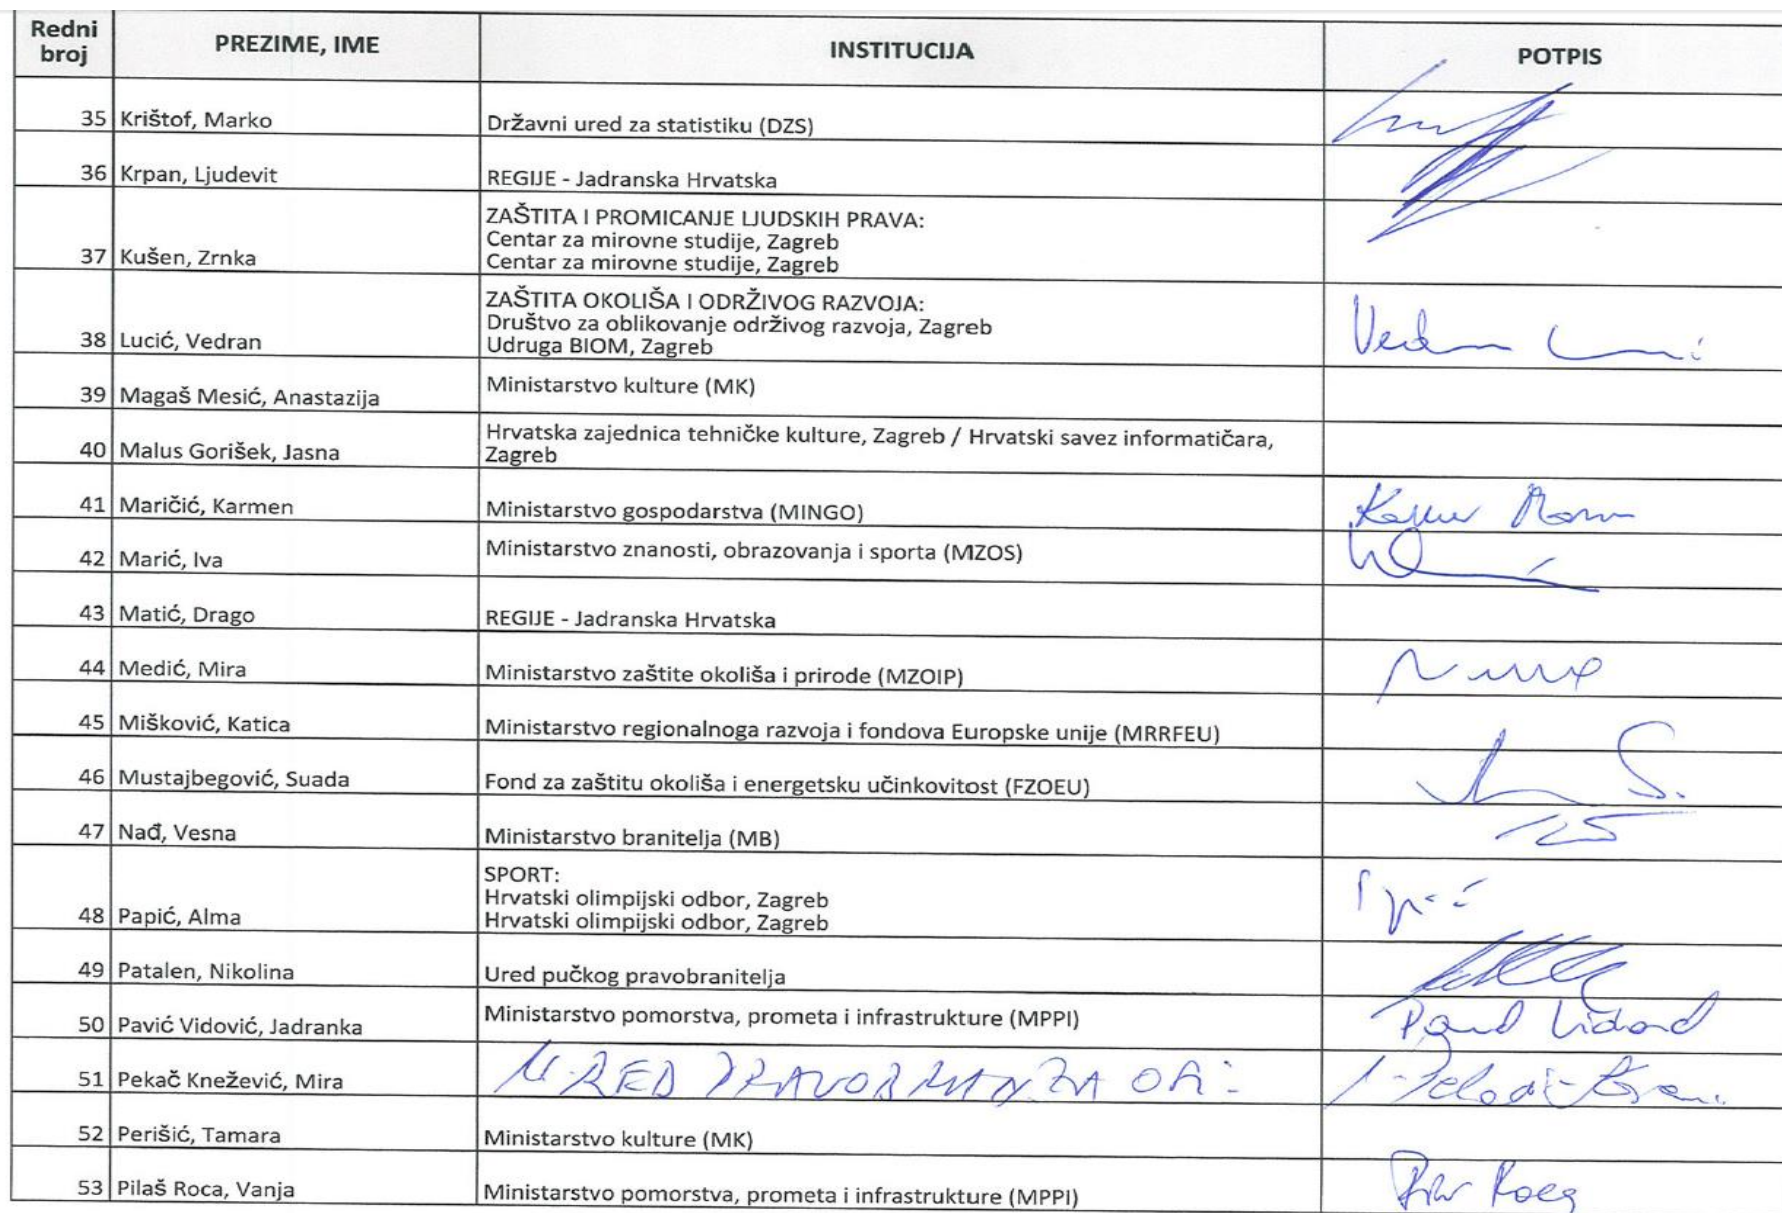 Redni broj PREZIME, IME INSTITUCIJA POTPIS
35 Krištof, Marko Državni ured za statistiku (DZS)
36 Krpan, Ljudevit REGIJE - Jadranska Hrvatska
ZAŠTITA I PROMICANJE LJUDSKIH PRAVA:
Centar za mirovne studije, Zagreb
37 Kušen, Zrnka Centar za mirovne studije, Zagreb
ZAŠTITA OKOLIŠA I ODRŽIVOG RAZVOJA:
Društvo za oblikovanje održivog razvoja, Zagreb
38 Lucić, Vedran Udruga BIOM, Zagreb
39 Magaš Mesić, Anastazija Ministarstvo kulture (MK)
Hrvatska zajednica tehničke kulture, Zagreb / Hrvatski savez informatičara,
40 Malus Gorišek, Jasna Zagreb
41 Maričić, Karmen Ministarstvo gospodarstva (MINGO)
42 Marić, Iva Ministarstvo znanosti, obrazovanja i sporta (MZOS)
43 Matić, Drago REGIJE - Jadranska Hrvatska
44 Medić, Mira Ministarstvo zaštite okoliša i prirode (MZOIP)
45 Mišković, Katica Ministarstvo regionalnoga razvoja i fondova Europske unije (MRRFEU)
46 Mustajbegović, Suada Fond za zaštitu okoliša i energetsku učinkovitost (FZOEU)
47 Nađ, Vesna Ministarstvo branitelja (MB)
SPORT:
Hrvatski olimpijski odbor, Zagreb
48 Papić, Alma Hrvatski olimpijski odbor, Zagreb
49 Patalen, Nikolina Ured pučkog pravobranitelja
50 Pavić Vidović, Jadranka Ministarstvo pomorstva, prometa i infrastrukture (MPPI)
51 Pekač Knežević, Mira URED PRAVOBRAN ZA
52 Perišić, Tamara Ministarstvo kulture (MK)
53 Pilaš Roca, Vanja Ministarstvo pomorstva, prometa i infrastrukture (MPPI)